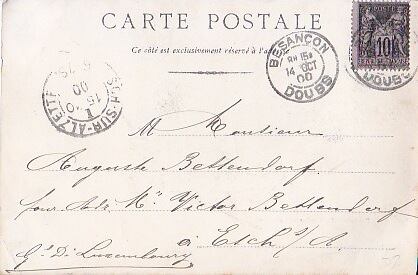 CARTE POSTALE
Ce côté est exclusivement réservé à l'adresse
BESANÇON
14 OCT
00
DOUBS
10
DOUBS
ESCH-SUR-ALZETTE
15 10
00
M Monsieur
Auguste Bettendorf
pour Adr. Mr Victor Bettendorf
à Esch s/A.
Gd D. Luxembourg